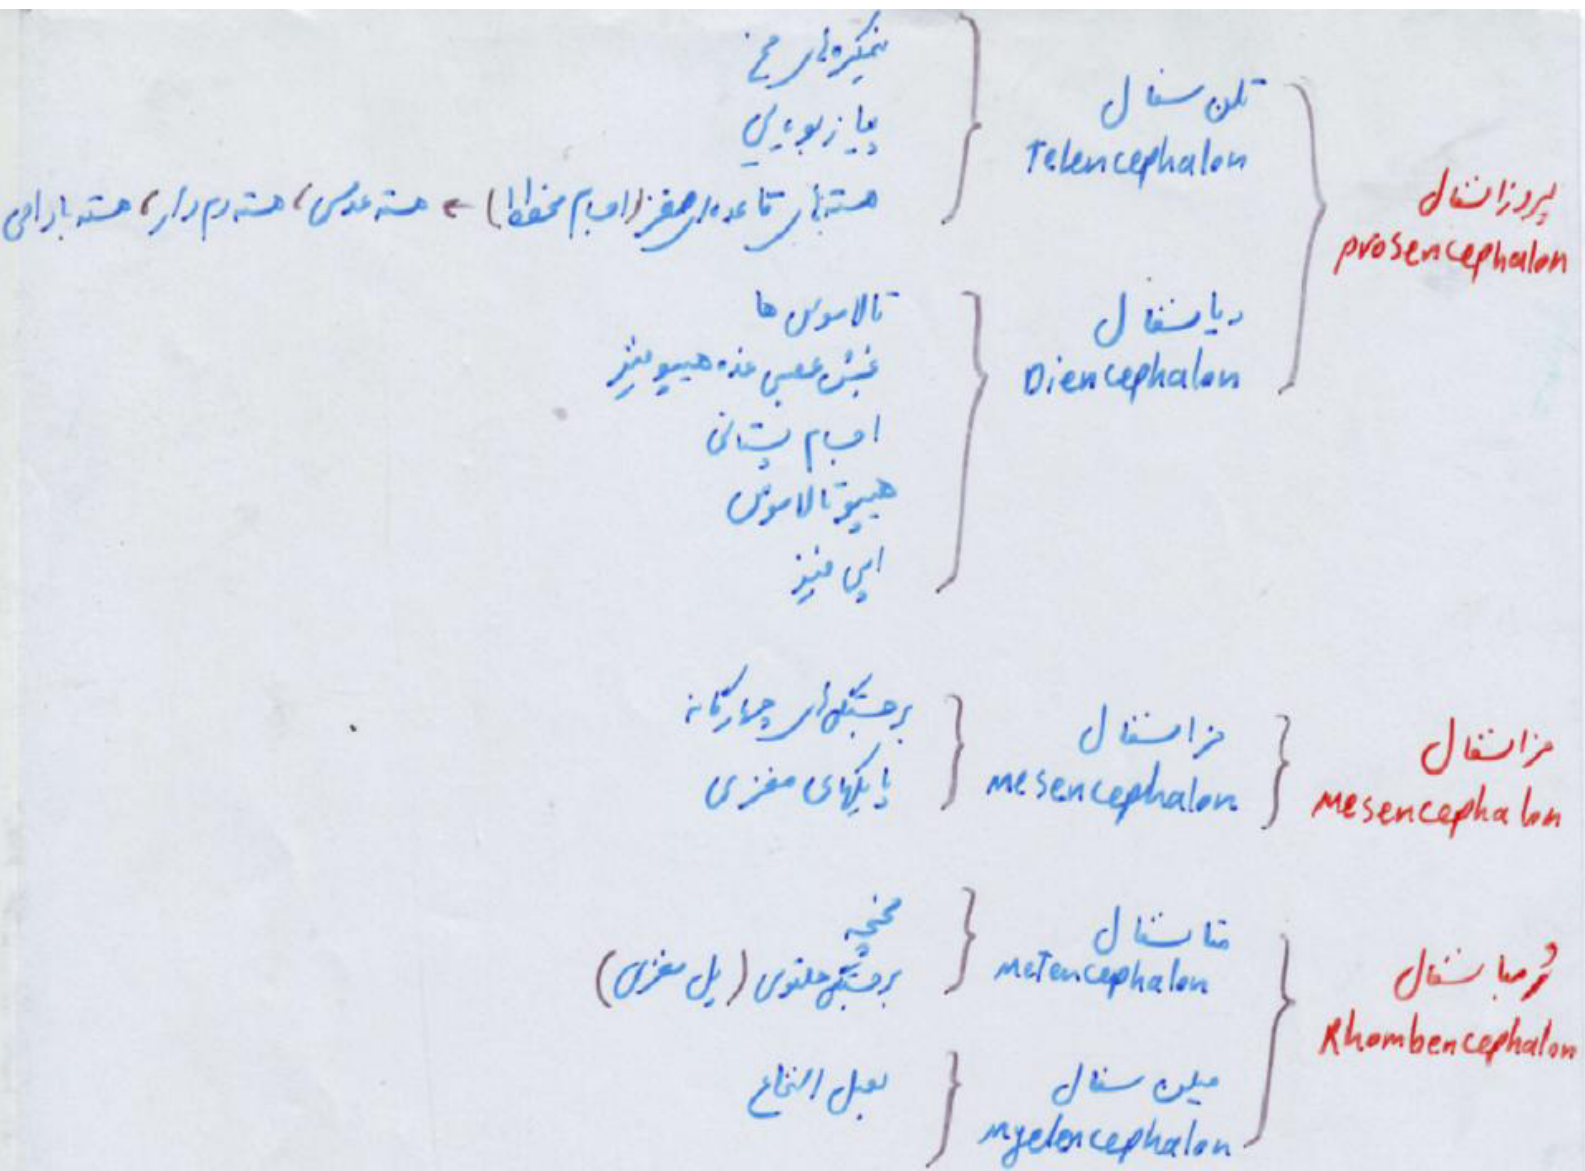 پروزانسفال
prosencephalon
تلن سفال
Telencephalon
نیمکره‌های مخ
پیاز بویایی
هسته‌های قاعده‌ای مغز (اجسام مخطط) ← هسته عدسی، هسته دم دار، هسته بادامی
دیانسفال
Diencephalon
تالاموس ها
بخش عصبی غده هیپوفیز
اجسام پستانی
هیپوتالاموس
اپی فیز
مزانسفال
mesencephalon
مزانسفال
mesencephalon
برجستگی‌های چهارگانه
پایکهای مغزی
رُمبانسفال
Rhombencephalon
متانسفال
metencephalon
مخچه
برجستگی حلقوی (پل مغزی)
میلن سفال
myelencephalon
بصل النخاع